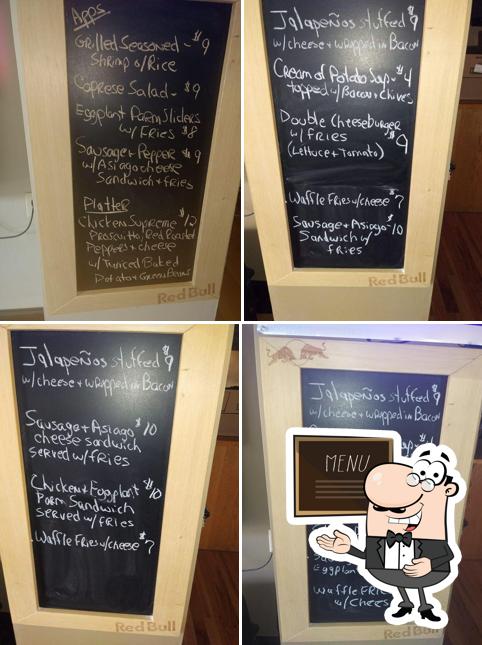 Apps
Grilled Seasoned - $9
Shrimp o/Rice
Caprese Salad - $9
Eggplant Parm Sliders
w/FRIES $8
Sausage + Pepper $9
w/Asiago cheese
Sandwich + fries
Platter
Chicken Supreme $12
Prosciutto, Red Roasted
Peppers + cheese
w/Twiced Baked
Potato + Green Beans
Red Bull
Jalapeños stuffed $9
w/cheese + wrapped in Bacon
Cream of Potato Soup - $4
topped w/Bacon + Chives
Double Cheeseburger
w/fries $9
(Lettuce + Tomato)
Waffle Fries w/cheese $7
Sausage + Asiago - $10
Sandwich w/
fries
Red Bull
Jalapeños stuffed $9
w/cheese + wrapped in Bacon
Sausage + Asiago $10
cheese sandwich
served w/fries
Chicken + Eggplant $10
Parm Sandwich
served w/fries
Waffle Fries w/cheese $7
Red Bull
Jalapeños stuffed $9
w/cheese + wrapped in Bacon
MENU
Eggplan
Waffle FRIE
w/Chees
Red Bull